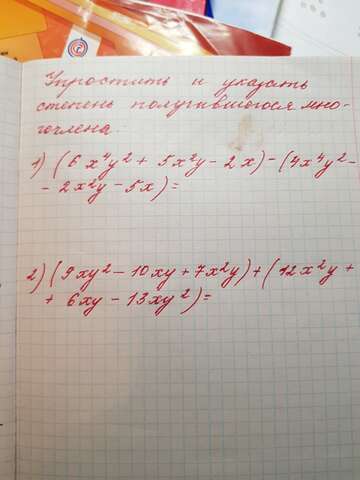 Упростить и указать
степень получившегося мно-
гочлена.
1) (6x⁴y² + 5x²y - 2x) - (4x⁴y² -
- 2x²y - 5x) =
2) (9xy² - 10xy + 7x²y) + (12x²y +
+ 6xy - 13xy²) =